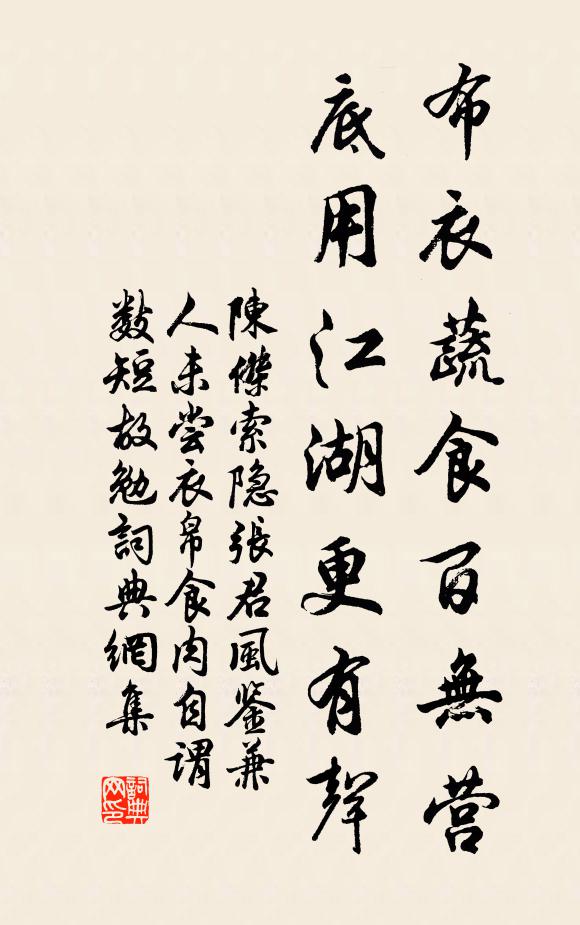 布衣蔬食百無营
底用江湖更有聲
陳傑索隐張君風鉴兼
人未尝衣帛食肉自谓
数短故勉詞典網集
詞典网印